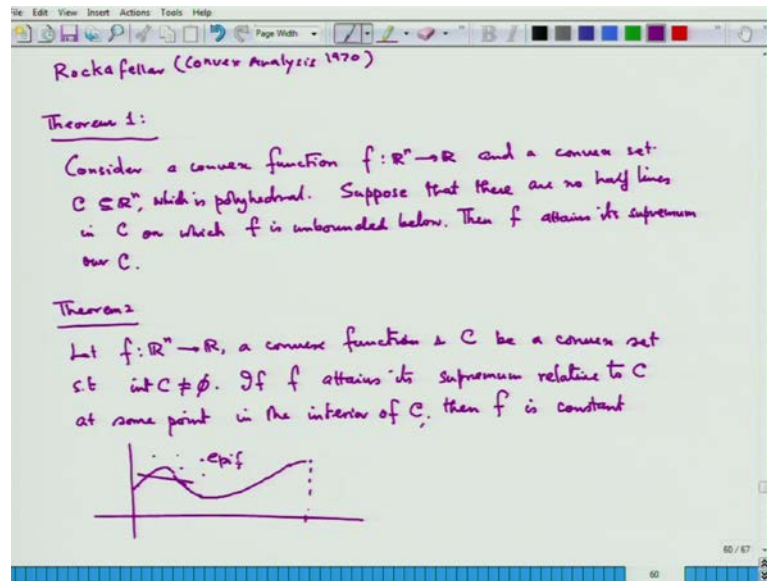 File Edit View Insert Actions Tools Help
Page Width
Rockafellar (Convex Analysis 1970)
Theorem 1:
Consider a convex function f : ℝⁿ → ℝ and a convex set
C ⊆ ℝⁿ, which is polyhedral. Suppose that there are no half lines
in C on which f is unbounded below. Then f attains its supremum
over C.
Theorem 2
Let f : ℝⁿ → ℝ, a convex function & C be a convex set
s.t int C ≠ ϕ. If f attains its supremum relative to C
at some point in the interior of C, then f is constant
epi f
60 / 67
60